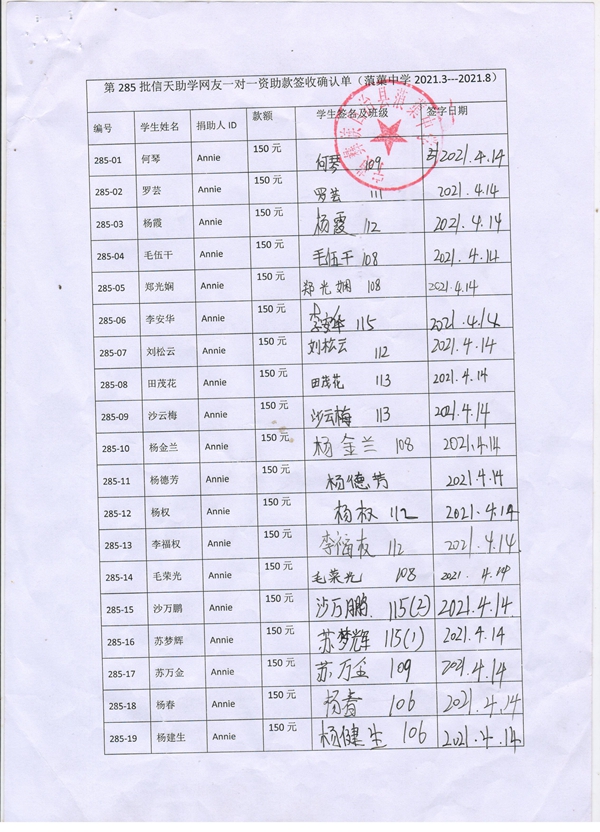 第 285 批信天助学网友一对一资助款签收确认单（蒗蕖中学 2021.3---2021.8）
编号 学生姓名 捐助人 ID 款额 学生签名及班级 签字日期
285-01 何琴 Annie 150 元 何琴 109 2021.4.14
285-02 罗芸 Annie 150 元 罗芸 111 2021.4.14
285-03 杨霞 Annie 150 元 杨霞 112 2021.4.14
285-04 毛伍干 Annie 150 元 毛伍干 108 2021.4.14
285-05 郑光娴 Annie 150 元 郑光娴 108 2021.4.14
285-06 李安华 Annie 150 元 李安华 115 2021.4.14
285-07 刘松云 Annie 150 元 刘松云 112 2021.4.14
285-08 田茂花 Annie 150 元 田茂花 113 2021.4.14
285-09 沙云梅 Annie 150 元 沙云梅 113 2021.4.14
285-10 杨金兰 Annie 150 元 杨金兰 108 2021.4.14
285-11 杨德芳 Annie 150 元 杨德芳 2021.4.14
285-12 杨权 Annie 150 元 杨权 112 2021.4.14
285-13 李福权 Annie 150 元 李福权 112 2021.4.14
285-14 毛荣光 Annie 150 元 毛荣光 108 2021.4.14
285-15 沙万鹏 Annie 150 元 沙万鹏 115(2) 2021.4.14
285-16 苏梦辉 Annie 150 元 苏梦辉 115(1) 2021.4.14
285-17 苏万金 Annie 150 元 苏万金 109 2021.4.14
285-18 杨春 Annie 150 元 杨春 106 2021.4.14
285-19 杨建生 Annie 150 元 杨健生 106 2021.4.14